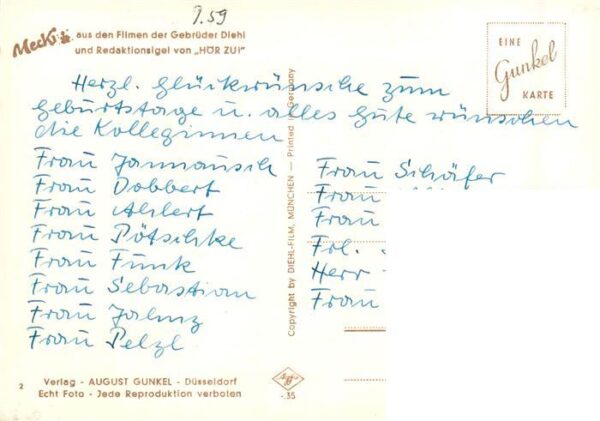 7.59
Mecki aus den Filmen der Gebrüder Diehl
und Redaktionsigel von „HÖR ZU!"
EINE
Gunkel
KARTE
Herzl. Glückwünsche zum
Geburtstage u. alles Gute wünschen
die Kolleginnen
Frau Jannausch
Frau Dobbert
Frau Ahlert
Frau Pötschke
Frau Funk
Frau Sebastian
Frau
Frau Pelzl
Frau Schäfer
Frau
Frau
Frl.
Herr
Frau
Copyright by DIEHL-FILM, MÜNCHEN — Printed in Germany
2
Verlag - AUGUST GUNKEL - Düsseldorf
Echt Foto - Jede Reproduktion verboten
-.35